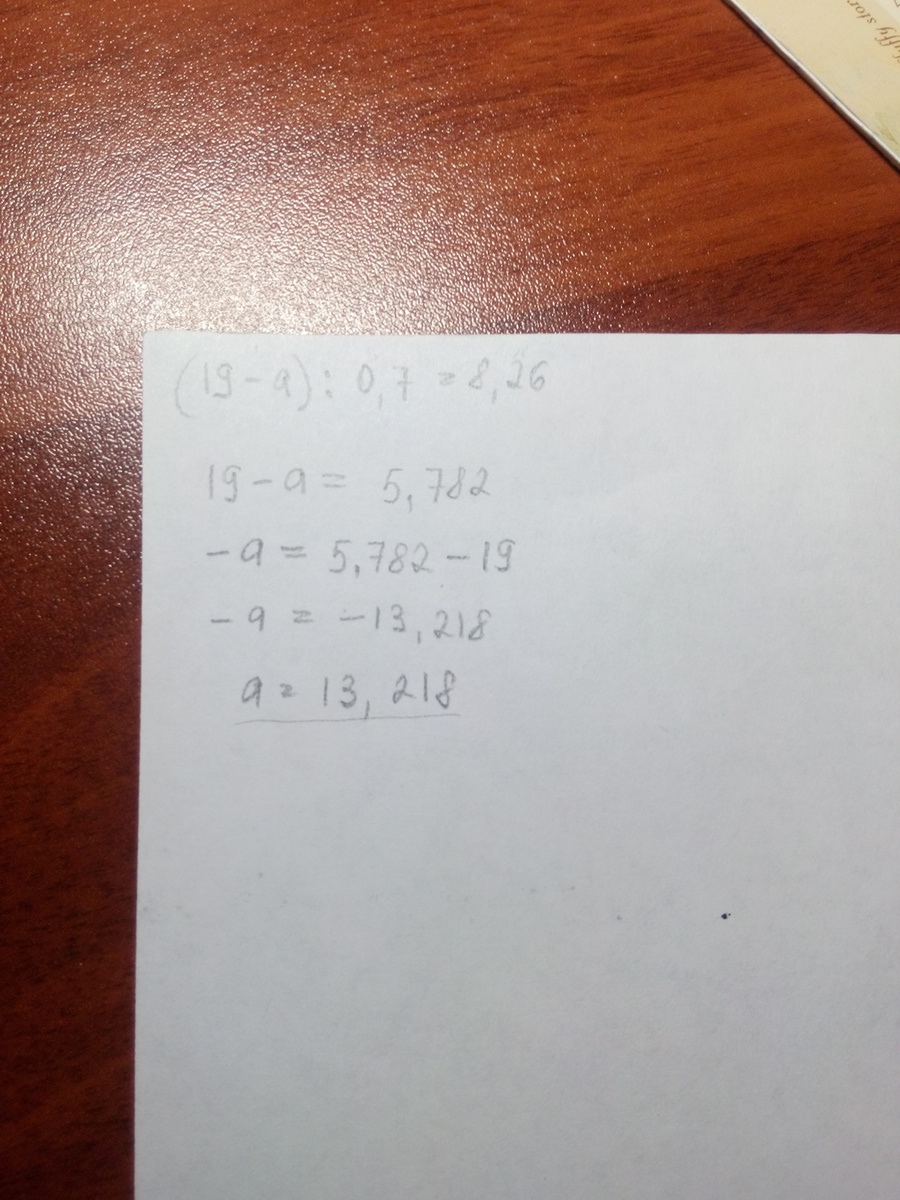 (19-a) : 0,7 = 8,26
19-a = 5,782
-a = 5,782-19
-a = -13,218
a = 13,218